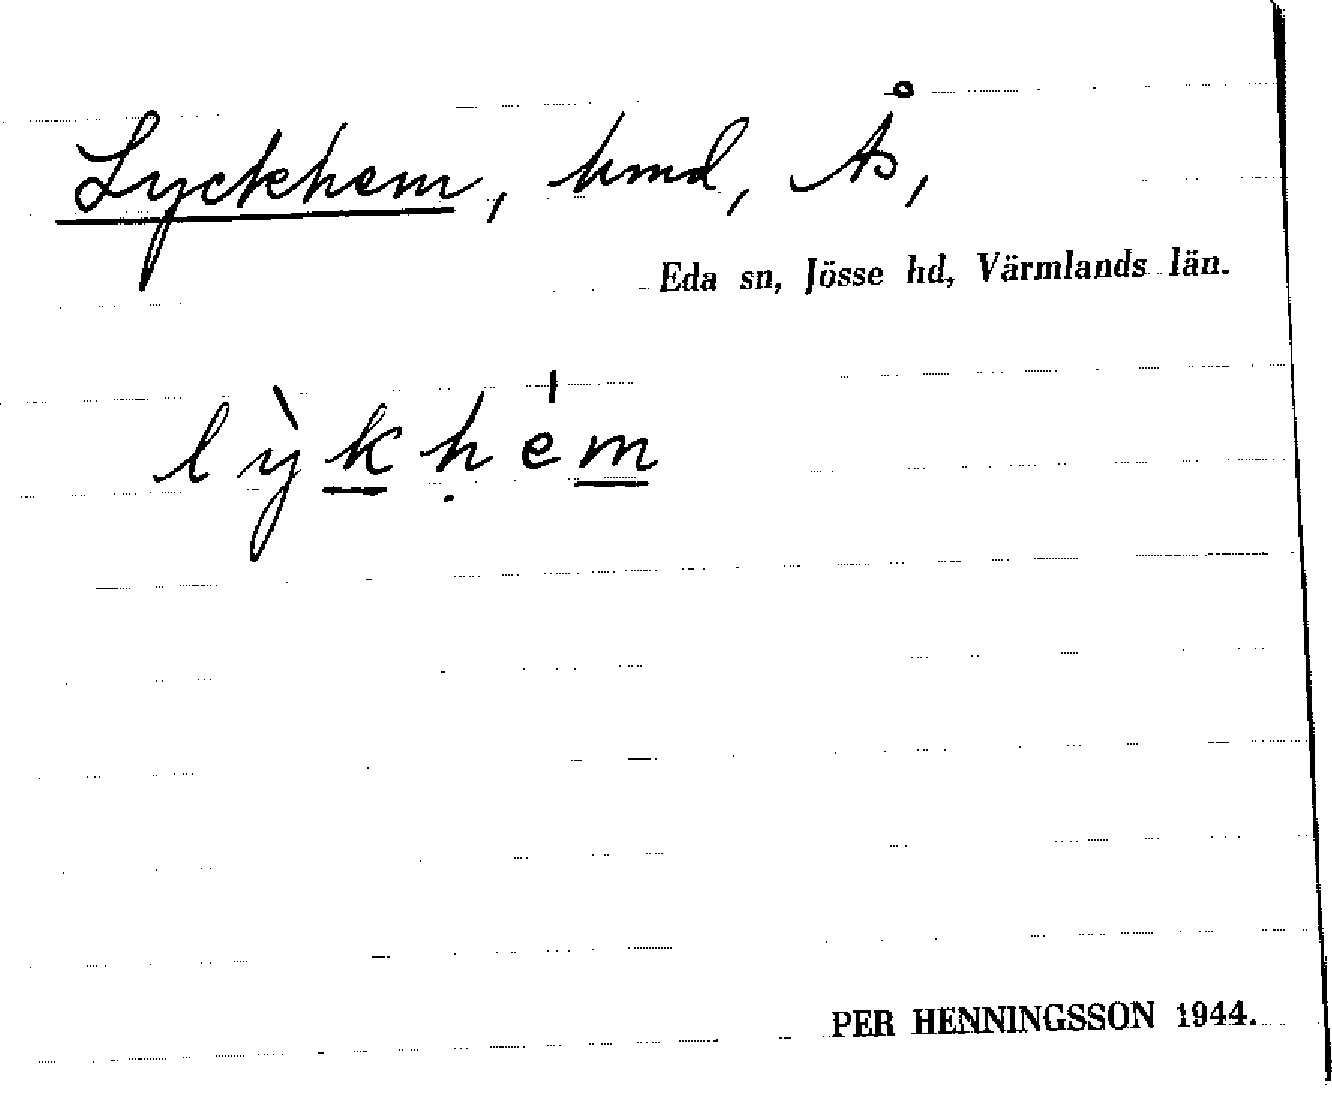 Lyckhem, hmd, Ås,
Eda sn, Jösse hd, Värmlands län.
lỳkḥem
PER HENNINGSSON 1944.